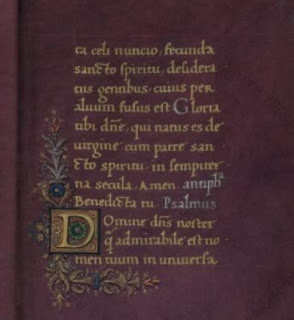 ta celi nuncio, fecunda
sancto spiritu, desidera
tus gentibus, cuius per
alvum fusus est Gloria
tibi dñe, qui natus es de
uirgine cum patre san
cto spiritu, in sempiter
na secula, Amen. antiph̃
Benedicta tu Psalmus
Domine dñs noster
q̃ admirabile est no
men tuum in universa